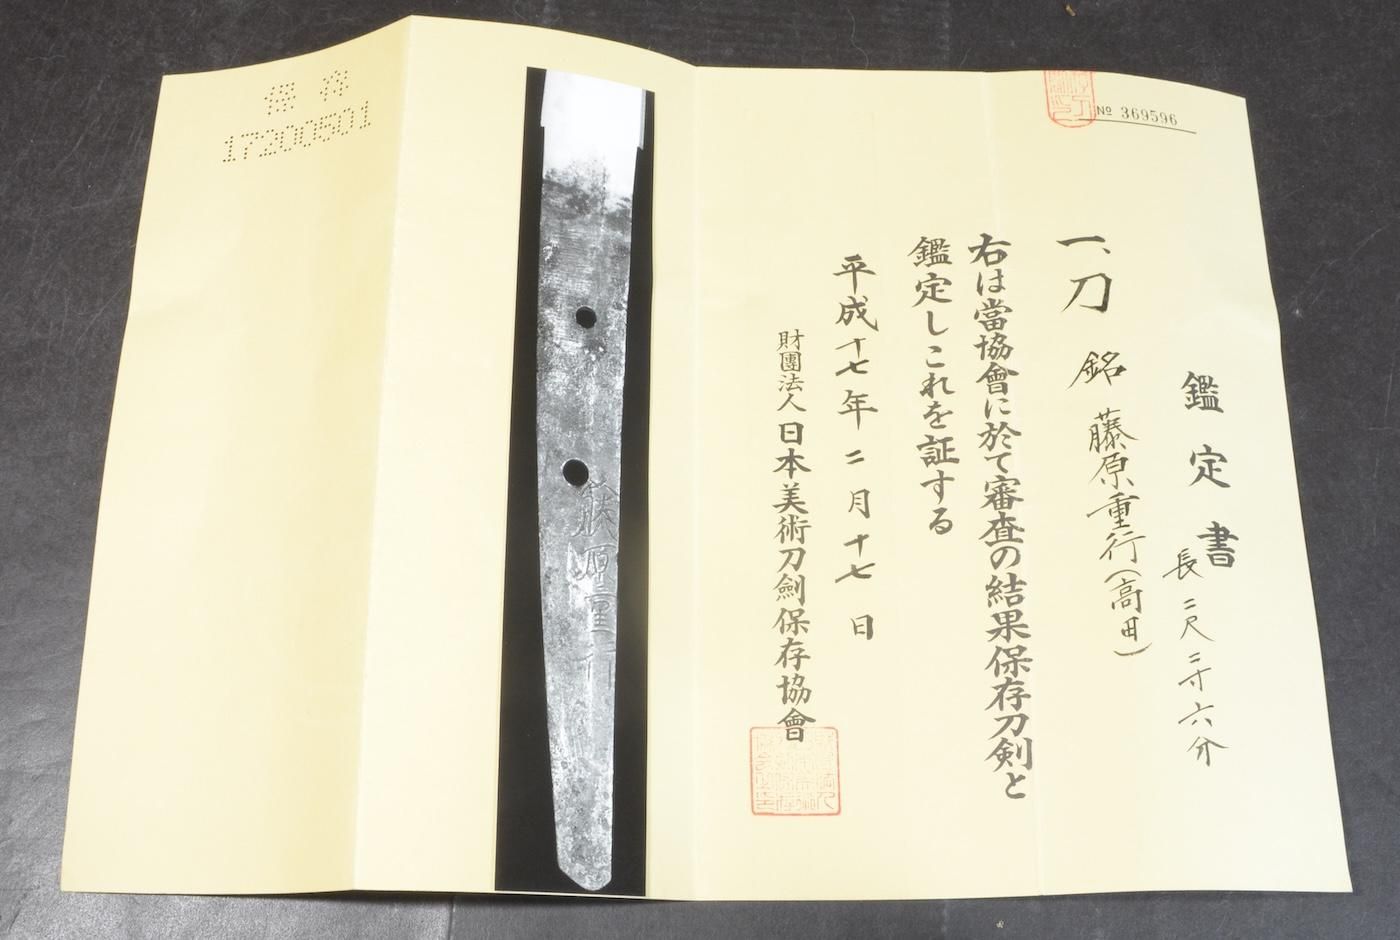 № 369596
鑑定書
長二尺二寸六分
一、刀 銘 藤原重行(高田)
右は當協會に於て審査の結果保存刀剣と
鑑定しこれを証する
平成十七年二月十七日
財團法人日本美術刀劍保存協會
藤原重行
保存
17200501